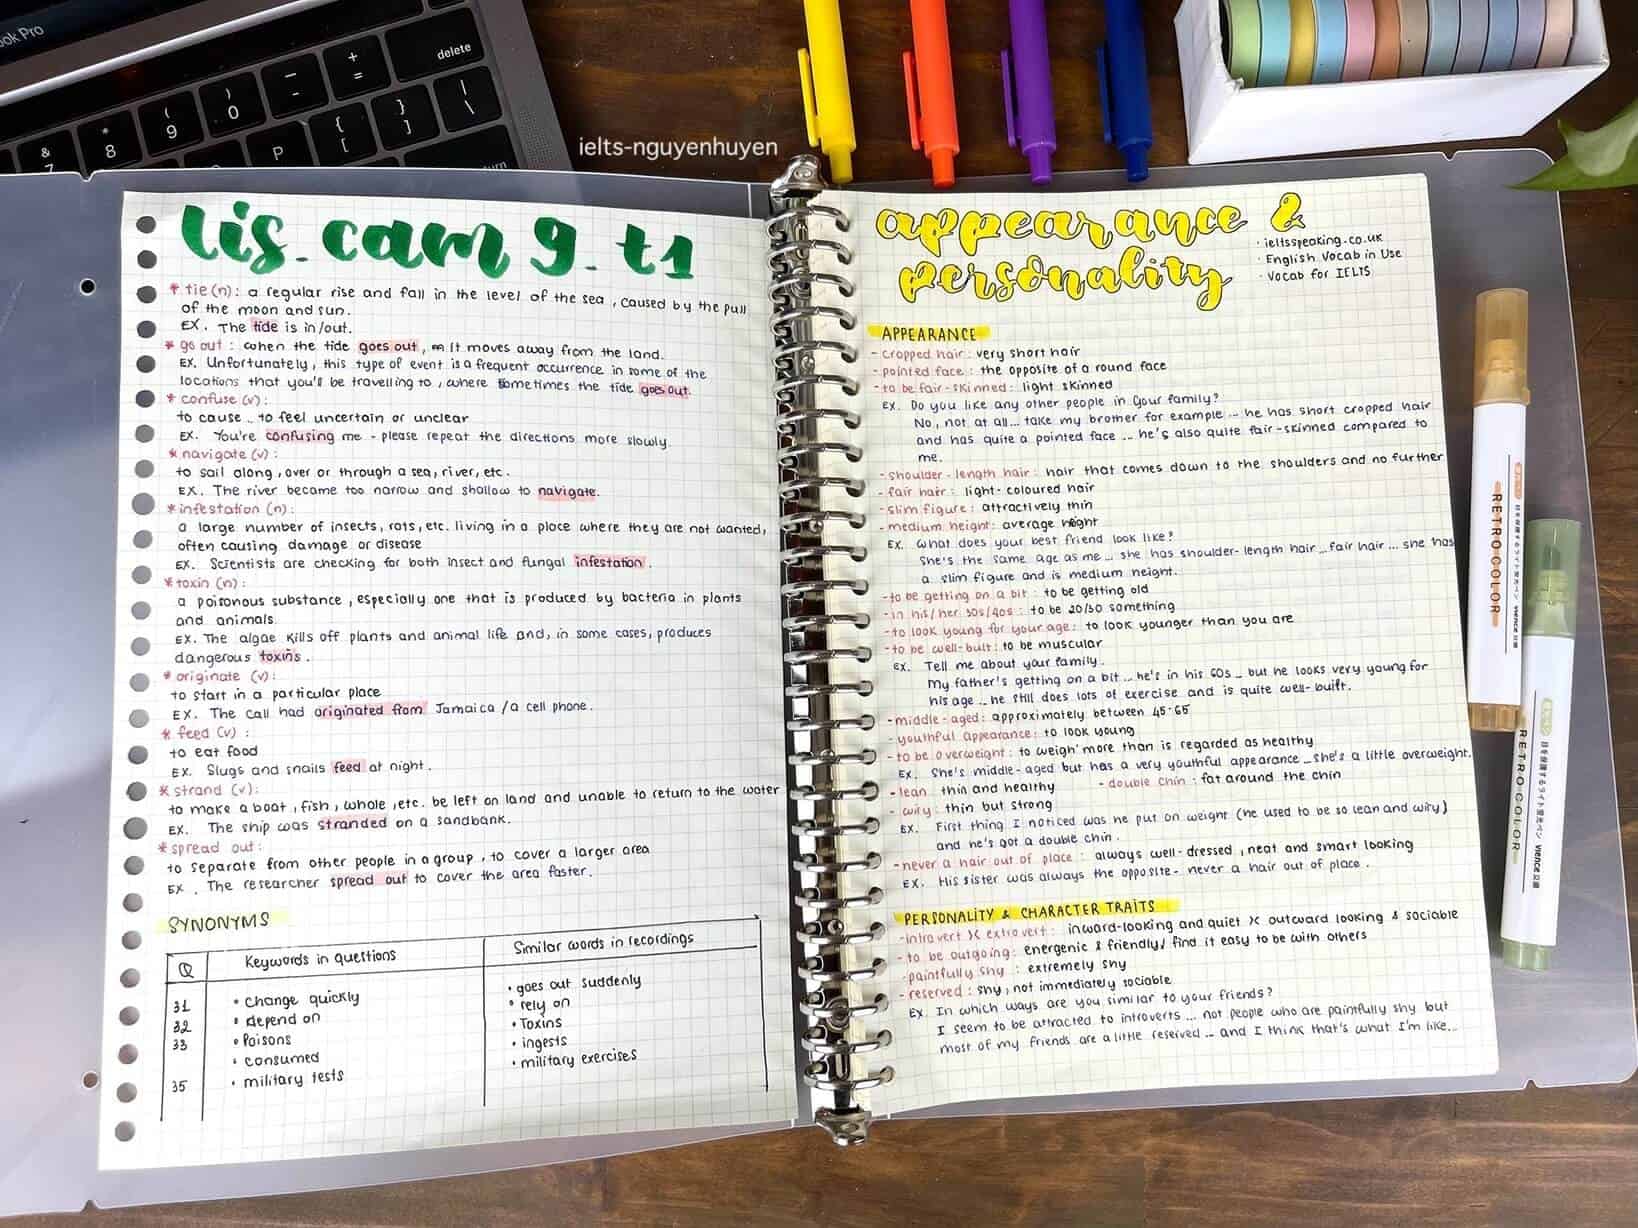 ook Pro
delete
+
=
-
)
0
(
9
*
8
&
7
P
{
[
}
]
|
\
ielts-nguyenhuyen
lis_cam 9_t1
* tie (n): a regular rise and fall in the level of the sea, caused by the pull
of the moon and sun.
EX. The tide is in/out.
* go out: when the tide goes out, it moves away from the land.
EX. Unfortunately, this type of event is a frequent occurrence in some of the
locations that you'll be travelling to, where sometimes the tide goes out.
* confuse (v):
to cause .. to feel uncertain or unclear
EX. You're confusing me - please repeat the directions more slowly.
* navigate (v):
to sail along, over or through a sea, river, etc.
EX. The river became too narrow and shallow to navigate.
* infestation (n):
a large number of insects, rats, etc. living in a place where they are not wanted,
often causing damage or disease
EX. Scientists are checking for both insect and fungal infestation.
* toxin (n):
a poisonous substance, especially one that is produced by bacteria in plants
and animals.
EX. The algae kills off plants and animal life and, in some cases, produces
dangerous toxins.
* originate (v):
to start in a particular place
EX. The call had originated from Jamaica / a cell phone.
* feed (v):
to eat food
EX. Slugs and snails feed at night.
* strand (v):
to make a boat, fish, whole, etc. be left on land and unable to return to the water
EX. The ship was stranded on a sandbank.
* spread out:
to separate from other people in a group, to cover a larger area
EX. The researcher spread out to cover the area faster.
SYNONYMS
Q Keywords in questions Similar words in recordings
31 • change quickly • goes out suddenly
32 • depend on • rely on
33 • Poisons • Toxins
• consumed • ingests
35 • military tests • military exercises
appearance &
personality
· ieltsspeaking.co.uk
· English Vocab in Use
· Vocab for IELTS
APPEARANCE
- cropped hair: very short hair
- pointed face: the opposite of a round face
- to be fair-skinned: light skinned
EX. Do you like any other people in your family?
No, not at all... take my brother for example ... he has short cropped hair
and has quite a pointed face ... he's also quite fair-skinned compared to
me.
- shoulder-length hair: hair that comes down to the shoulders and no further
- fair hair: light-coloured hair
- slim figure: attractively thin
- medium height: average height
EX. What does your best friend look like?
She's the same age as me ... she has shoulder-length hair ... fair hair ... she has
a slim figure and is medium height.
- to be getting on a bit: to be getting old
- in his/her 30s/40s: to be 20/30 something
- to look young for your age: to look younger than you are
- to be well-built: to be muscular
EX. Tell me about your family.
My father's getting on a bit ... he's in his 60s ... but he looks very young for
his age ... he still does lots of exercise and is quite well-built.
- middle-aged: approximately between 45-65
- youthful appearance: to look young
- to be overweight: to weigh more than is regarded as healthy
EX. She's middle-aged but has a very youthful appearance ... she's a little overweight.
- lean: thin and healthy - double chin: fat around the chin
- wiry: thin but strong
EX. First thing I noticed was he put on weight (he used to be so lean and wiry)
and he's got a double chin.
- never a hair out of place: always well-dressed, neat and smart looking
EX. His sister was always the opposite - never a hair out of place.
PERSONALITY & CHARACTER TRAITS
- introvert >< extrovert: inward-looking and quiet >< outward looking & sociable
- to be outgoing: energenic & friendly/ find it easy to be with others
- painfully shy: extremely shy
- reserved: shy, not immediately sociable
EX. In which ways are you similar to your friends?
I seem to be attracted to introverts ... not people who are painfully shy but
most of my friends are a little reserved ... and I think that's what I'm like...
RETRO COLOR
RETRO COLOR